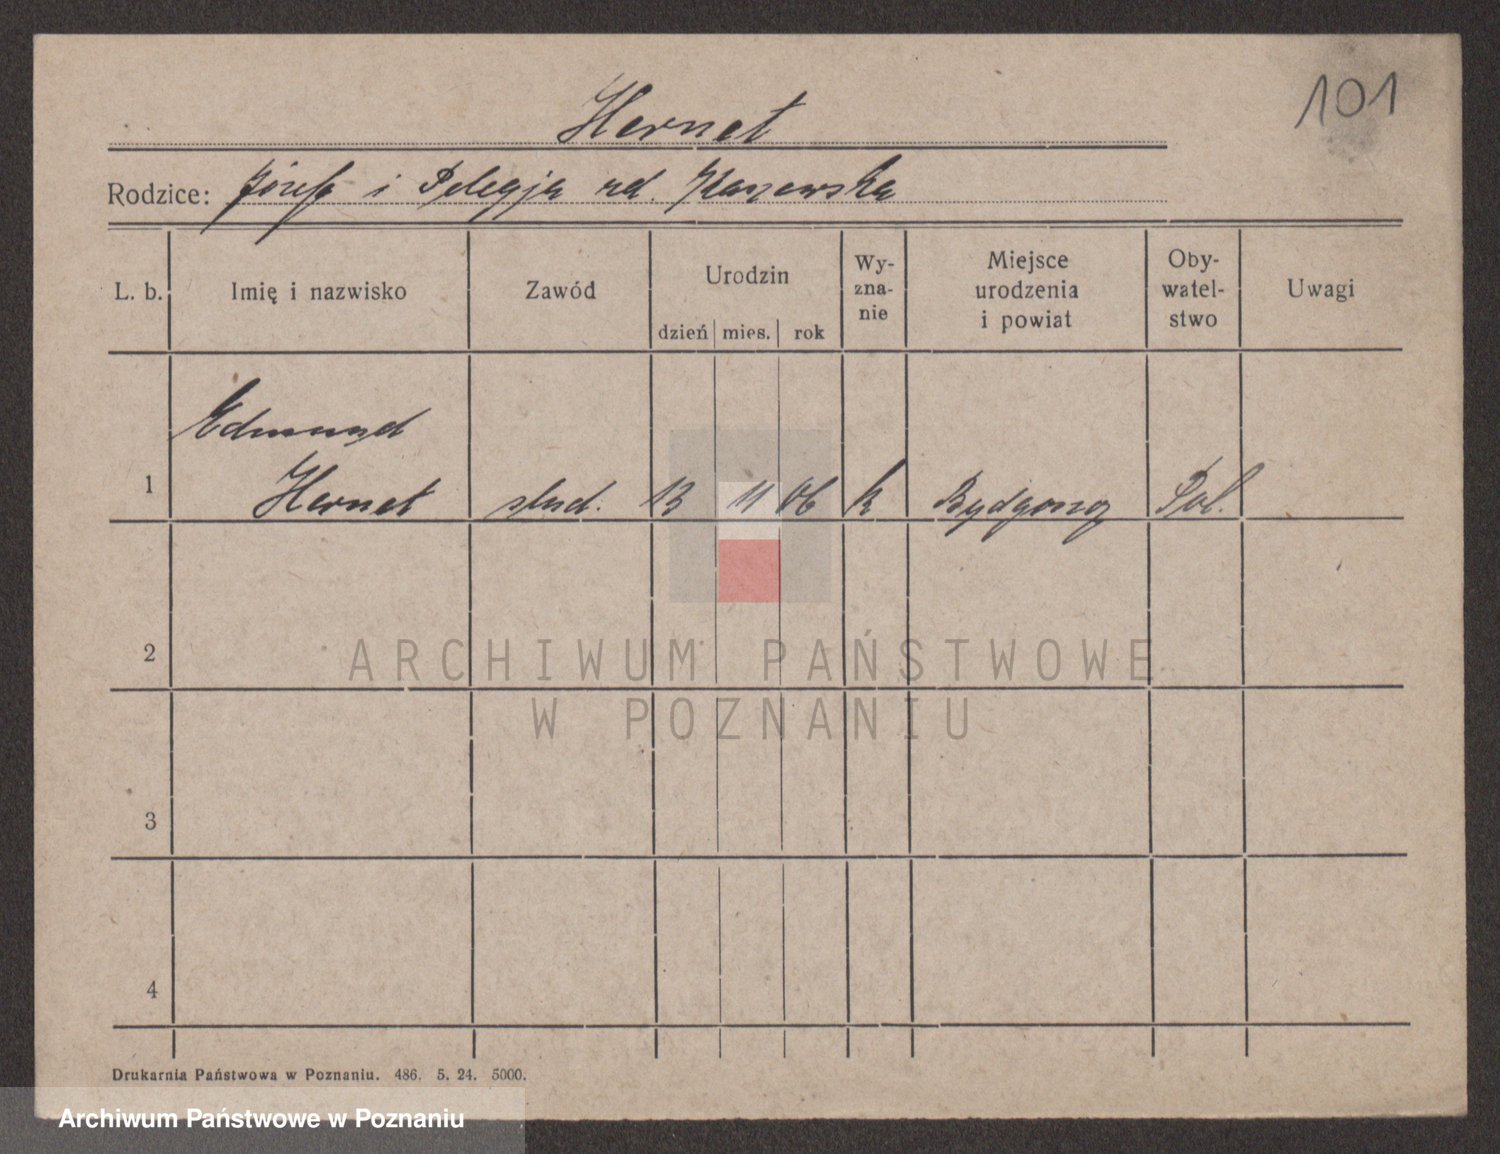 101
Hernet
Rodzice: Józef i Pelagja rd. Kaszewska
L. b. Imię i nazwisko Zawód Urodzin dzień mies. rok Wy-zna-nie Miejsce urodzenia i powiat Oby-watel-stwo Uwagi
Edmund
1 Hernet stud. 13 11 06 k Bydgoszcz Pol.
2
3
4
ARCHIWUM PAŃSTWOWE
W POZNANIU
Drukarnia Państwowa w Poznaniu. 486. 5. 24. 5000.
Archiwum Państwowe w Poznaniu